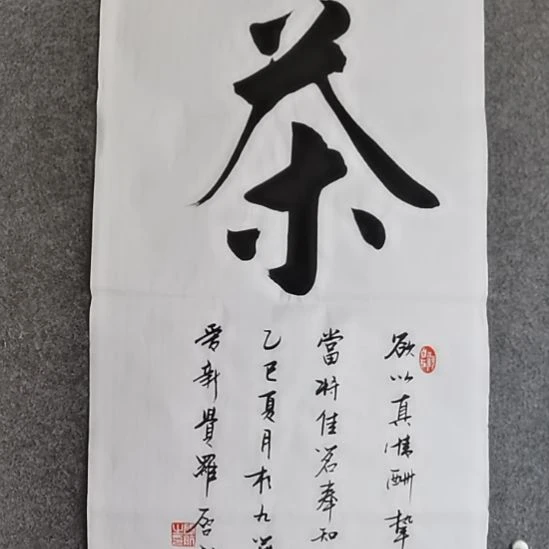 茶
欲以真情酬挚
當将佳茗奉知
乙巳夏月於九
爱新覺羅啓